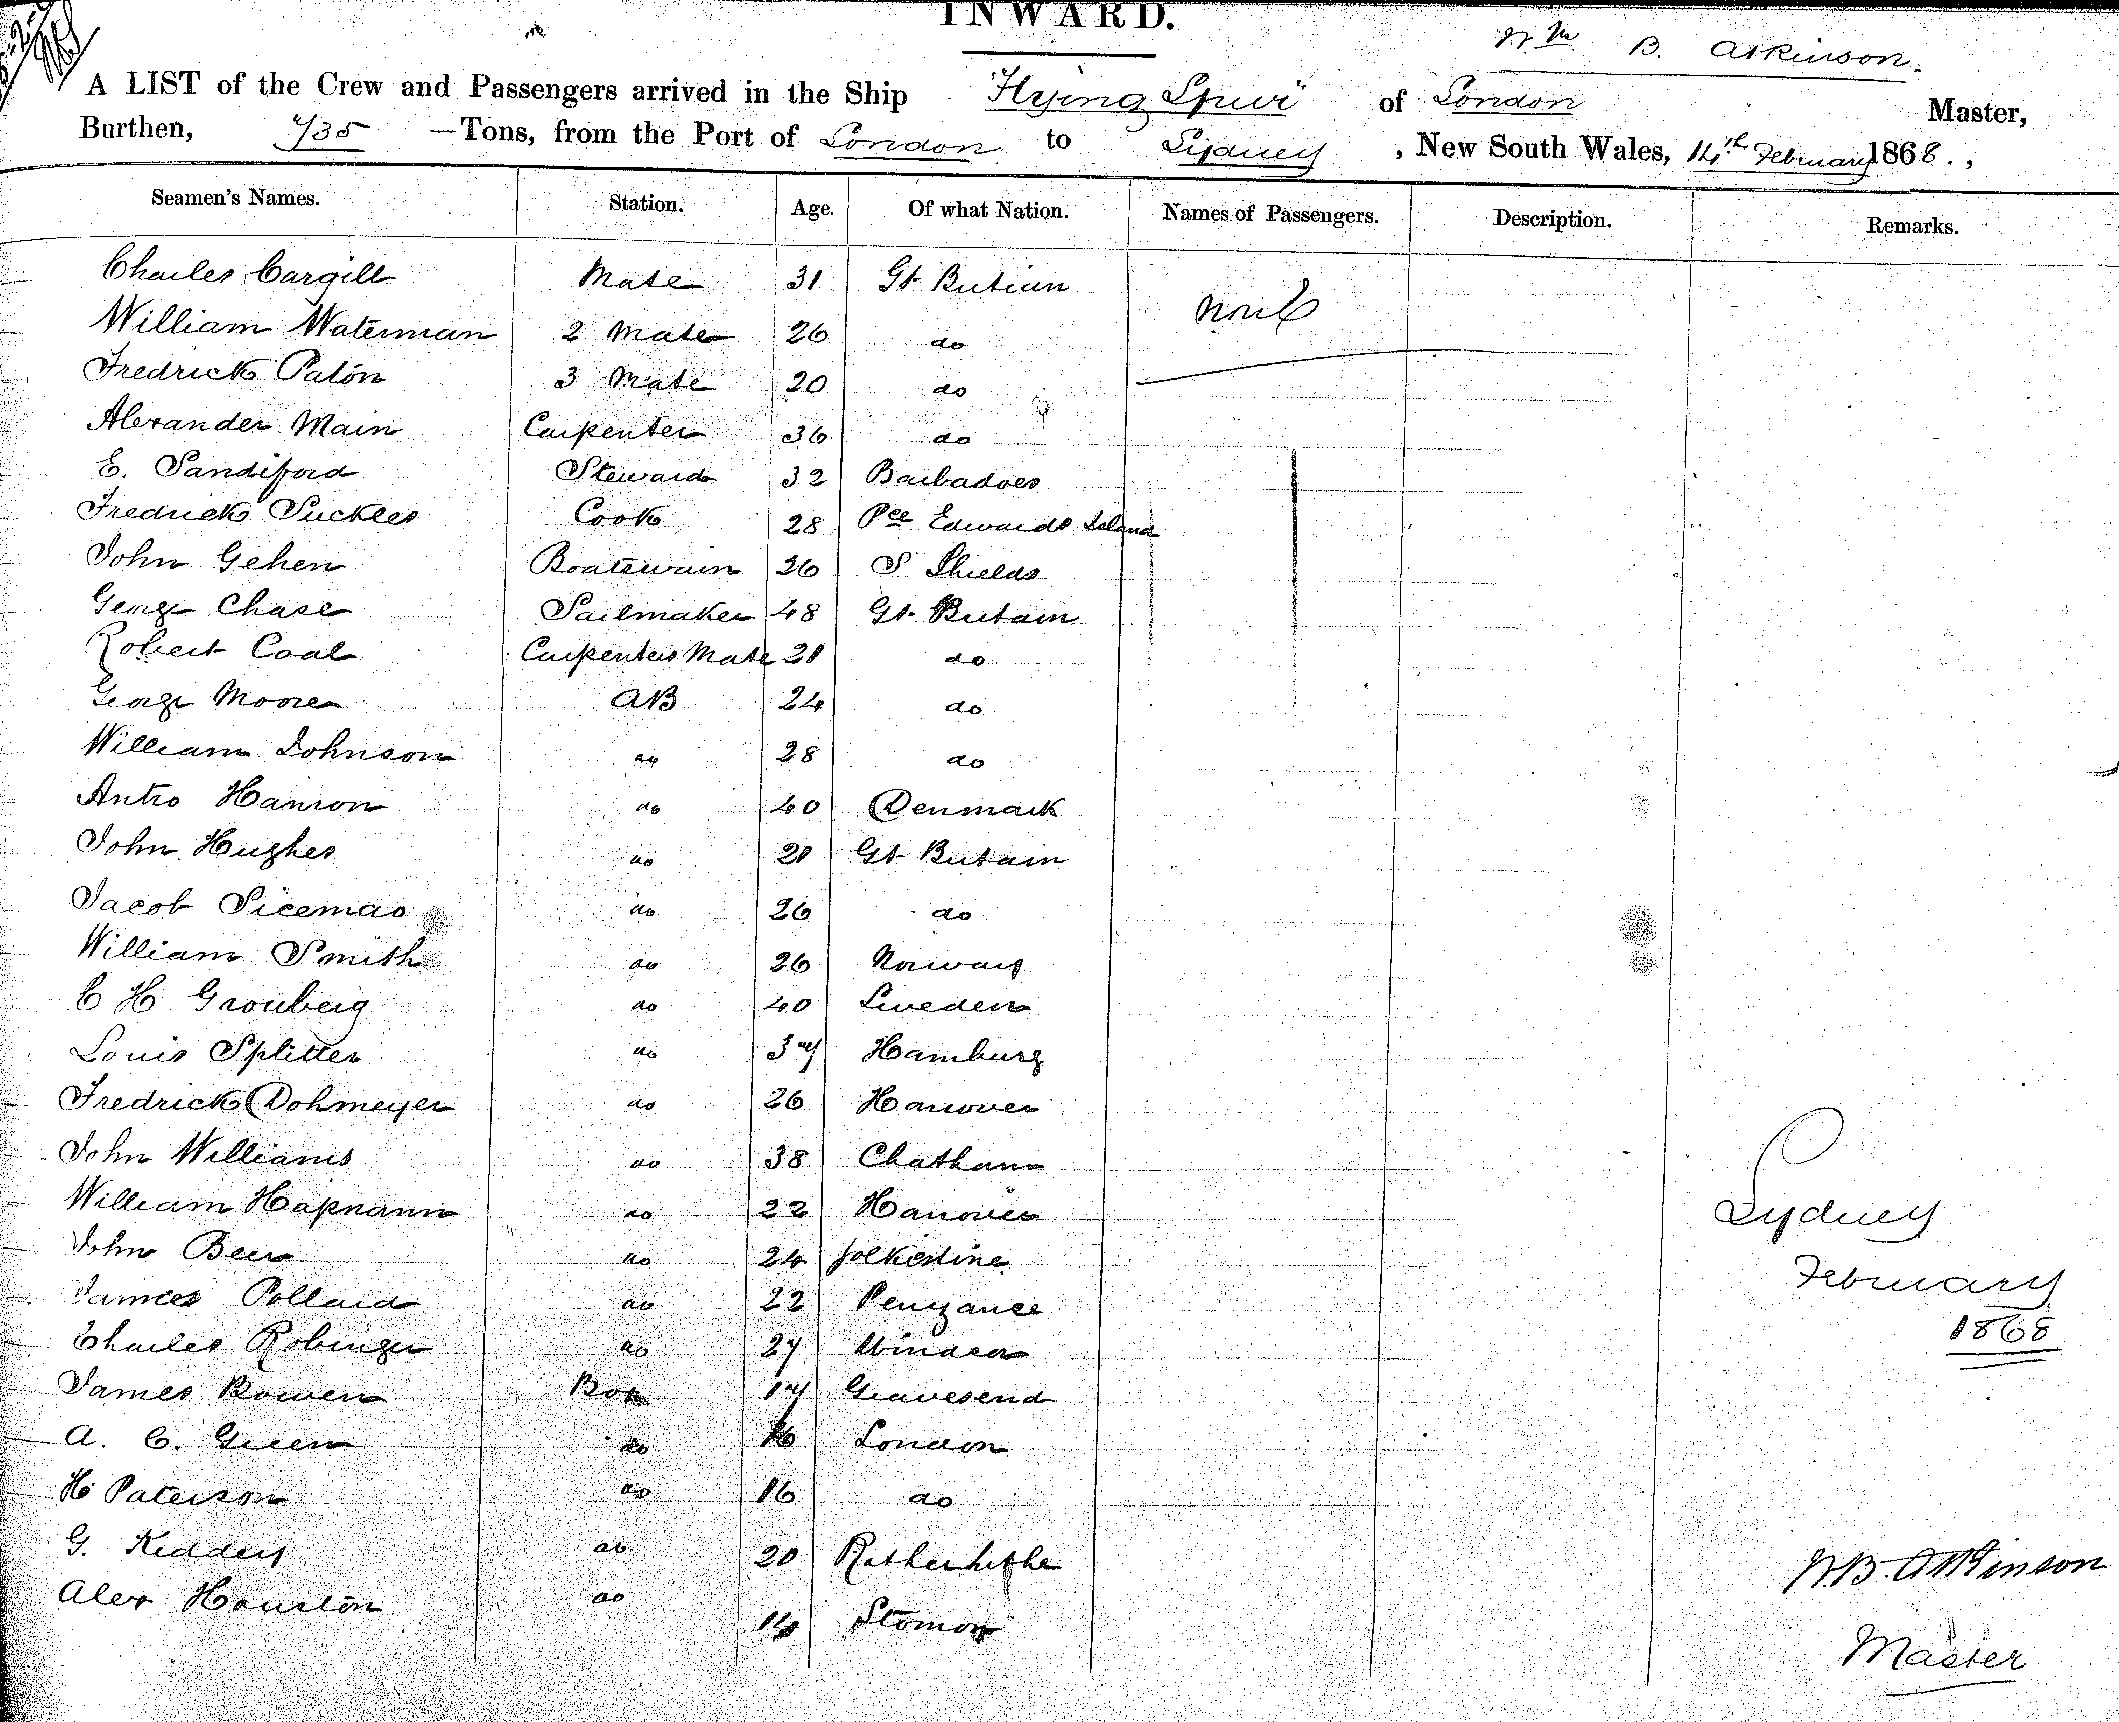 INWARD.
Wm B. Atkinson.
A LIST of the Crew and Passengers arrived in the Ship Flying Spur of London Master,
Burthen, 735 —Tons, from the Port of London to Sydney, New South Wales, 14th February 1868.,
Seamen's Names. Station. Age. Of what Nation. Names of Passengers. Description. Remarks.
Charles Cargill Mate 31 Gt Britian None
William Waterman 2 Mate 26 do
Fredrick Paton 3 Mate 20 do
Alexander Main Carpenter 36 do
E. Sandiford Steward 32 Barbadoes
Fredrick Suckles Cook 28 Pce Edwards Island
John Gehen Boatswain 26 S Shields
George Chase Sailmaker 48 Gt Britain
Robert Coal Carpenters Mate 21 do
George Moore AB 24 do
William Johnson do 28 do
Antro Hanson do 40 Denmark
John Hughes do 21 Gt Britain
Jacob do 26 do
William Smith do 26 Norway
C H Gronberg do 40 Sweden
Louis Splitter do 37 Hamburg
Fredrick Dohmeyer do 26 Hanover
John Williams do 38 Chatham
William Hapmann do 22 Hanover
John Beer do 24 folkestine
James Pollard do 22 Penzance
Charles Robinger do 27 Windsor
James Bowen Boy 17 Gravesend
A. C. Green do 16 London
H Paterson do 16 do
G. Kiddey do 20 Rotherhithe
Alex Houston do
Sydney
February
1868
W.B. Atkinson
Master